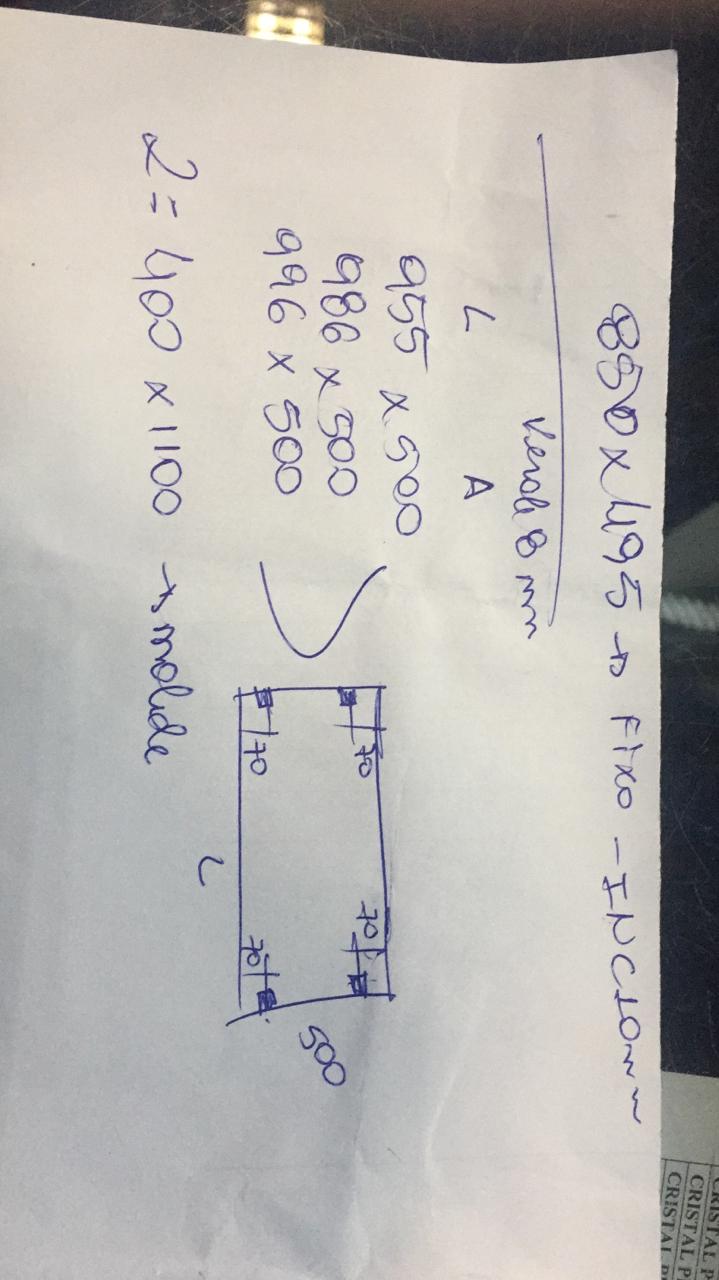 850 x 495 → Fixo - INC 10mm
Verde 8 mm
L A
955 x 500
986 x 500
996 x 500
70
70
70
70
500
L
2 = 400 x 1100 → molde
CRISTAL P
CRISTAL P
CRISTAL P